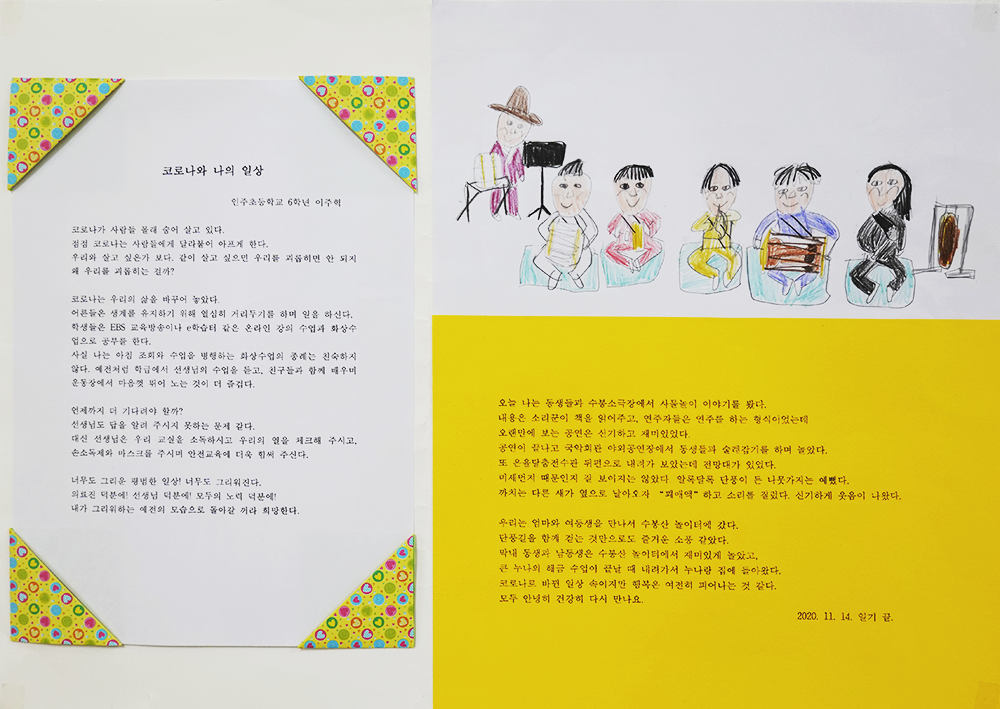 코로나와 나의 일상
인주초등학교 6학년 이주혁
코로나가 사람들 몰래 숨어 살고 있다.
점점 코로나는 사람들에게 달라붙어 아프게 한다.
우리와 살고 싶은가 보다. 같이 살고 싶으면 우리를 괴롭히면 안 되지
왜 우리를 괴롭히는 걸까?
코로나는 우리의 삶을 바꾸어 놓았다.
어른들은 생계를 유지하기 위해 열심히 거리두기를 하며 일을 하신다.
학생들은 EBS 교육방송이나 e학습터 같은 온라인 강의 수업과 화상수
업으로 공부를 한다.
사실 나는 아침 조회와 수업을 병행하는 화상수업의 종례는 친숙하지
않다. 예전처럼 학급에서 선생님의 수업을 듣고, 친구들과 함께 배우며
운동장에서 마음껏 뛰어 노는 것이 더 즐겁다.
언제까지 더 기다려야 할까?
선생님도 답을 알려 주시지 못하는 문제 같다.
대신 선생님은 우리 교실을 소독하시고 우리의 열을 체크해 주시고,
손소독제와 마스크를 주시며 안전교육에 더욱 힘써 주신다.
너무도 그리운 평범한 일상! 너무도 그리워진다.
의료진 덕분에! 선생님 덕분에! 모두의 노력 덕분에!
내가 그리워하는 예전의 모습으로 돌아갈 꺼라 희망한다.
오늘 나는 동생들과 수봉소극장에서 사물놀이 이야기를 봤다.
내용은 소리꾼이 책을 읽어주고, 연주자들은 연주를 하는 형식이었는데
오랜만에 보는 공연은 신기하고 재미있었다.
공연이 끝나고 국악회관 야외공연장에서 동생들과 술래잡기를 하며 놀았다.
또 은율탈춤전수관 뒤편으로 내려가 보았는데 전망대가 있었다.
미세먼지 때문인지 잘 보이지는 않았다 알록달록 단풍이 든 나뭇가지는 예뻤다.
까치는 다른 새가 옆으로 날아오자 “꽤애액”하고 소리를 질렀다. 신기하게 웃음이 나왔다.
우리는 엄마와 여동생을 만나서 수봉산 놀이터에 갔다.
단풍길을 함께 걷는 것만으로도 즐거운 소풍 같았다.
막내 동생과 남동생은 수봉산 놀이터에서 재미있게 놀았고,
큰 누나의 해금 수업이 끝날 때 내려가서 누나랑 집에 돌아왔다.
코로나로 바뀐 일상 속이지만 행복은 여전히 피어나는 것 같다.
모두 안녕히 건강히 다시 만나요.
2020. 11. 14. 일기 끝.